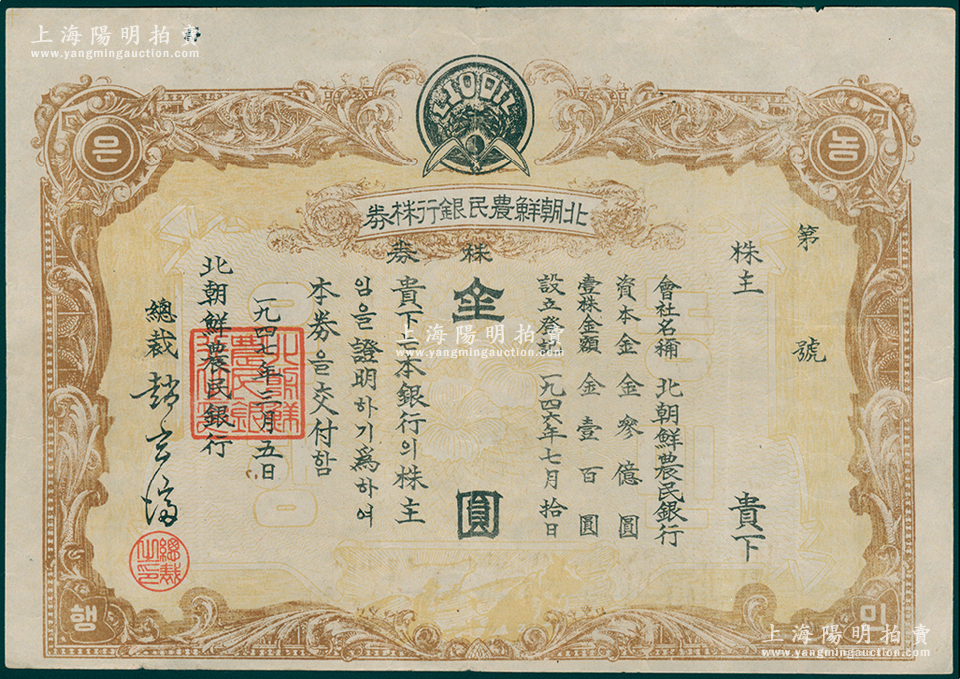 上海陽明拍賣
www.yangmingauction.com
농
민
은
행
北朝鮮農民銀行株券
株券
第 號
株主 貴下
會社名稱 北朝鮮農民銀行
資本金 金參億圓
壹株金額 金壹百圓
設立登記 一九四六年七月拾日
金 圓
貴下는本銀行의株主
임을證明하기爲하여
本券을交付함
一九四七年三月五日
北朝鮮農民銀行
總裁 趙
總裁之印
上海陽明拍賣
www.yangmingauction.com
上海陽明拍賣
www.yangmingauction.com